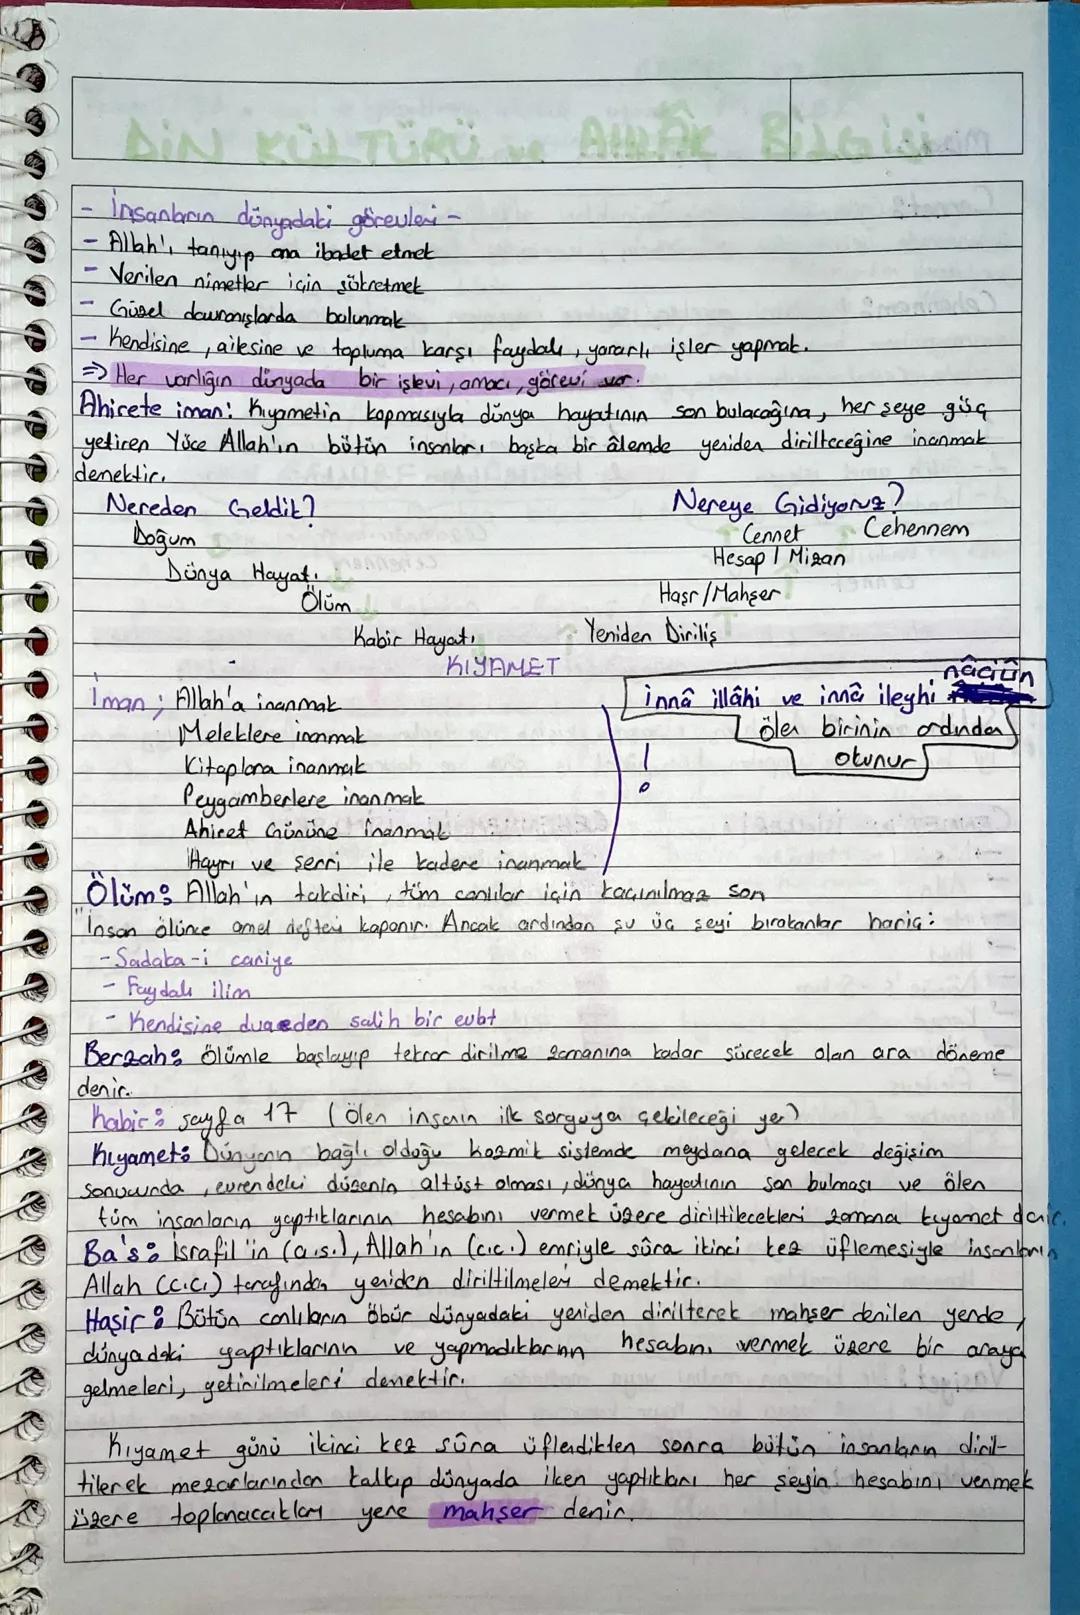 - İnsanların dünyadaki görevleri -
- Allah'ı tanıyıp ona ibadet etmek
- Verilen nimetler için şükretmek
- Güzel davranışlarda bulunmak
- Kendisine, ailesine ve topluma karşı faydalı, yararlı işler yapmak.
⇒ Her varlığın dünyada bir işlevi, amacı, görevi var.
Ahirete iman: Kıyametin kopmasıyla dünya hayatının son bulacağına, her şeye güç
yetiren Yüce Allah'ın bütün insanları başka bir âlemde yeniden dirilteceğine inanmak
demektir.
Nereden Geldik? Nereye Gidiyoruz?
Doğum Cennet Cehennem
Dünya Hayatı Hesap / Mizan
Ölüm Haşr/Mahşer
Kabir Hayatı Yeniden Diriliş
KIYAMET
nâciûn
İman; Allah'a inanmak innâ illâhi ve innâ ileyhi
Meleklere inanmak ölen birinin ardından
Kitaplara inanmak ! okunur
Peygamberlere inanmak
Ahiret Gününe inanmak
Hayrı ve şerri ile kadere inanmak
Ölüm: Allah'ın takdiri, tüm canlılar için kaçınılmaz son
"İnsan ölünce amel defteri kapanır. Ancak ardından şu üç şeyi bırakanlar hariç:
- Sadaka-i cariye
- Faydalı ilim
- Kendisine dua eden salih bir evlat
Berzah: Ölümle başlayıp tekrar dirilme zamanına kadar sürecek olan ara döneme
denir.
Kabir: sayfa 17 (Ölen insanın ilk sorguya çekileceği yer)
Kıyamet: Dünyanın bağlı olduğu kozmik sistemde meydana gelecek değişim
sonucunda, evrendeki düzenin altüst olması, dünya hayatının son bulması ve ölen
tüm insanların yaptıklarının hesabını vermek üzere diriltilecekleri zamana kıyamet denir.
Ba's: İsrafil'in (a.s.), Allah'ın (c.c.) emriyle sûra ikinci kez üflemesiyle insanların
Allah (c.c.) tarafından yeniden diriltilmeleri demektir.
Haşir: Bütün canlıların öbür dünyadaki yeniden dirilterek mahşer denilen yerde,
dünyadaki yaptıklarının ve yapmadıklarının hesabını vermek üzere bir araya
gelmeleri, getirilmeleri demektir.
Kıyamet günü ikinci kez sûra üflendikten sonra bütün insanların diril-
tilerek mezarlarından kalkıp dünyada iken yaptıkları her şeyin hesabını vermek
üzere toplanacakları yere mahşer denir.